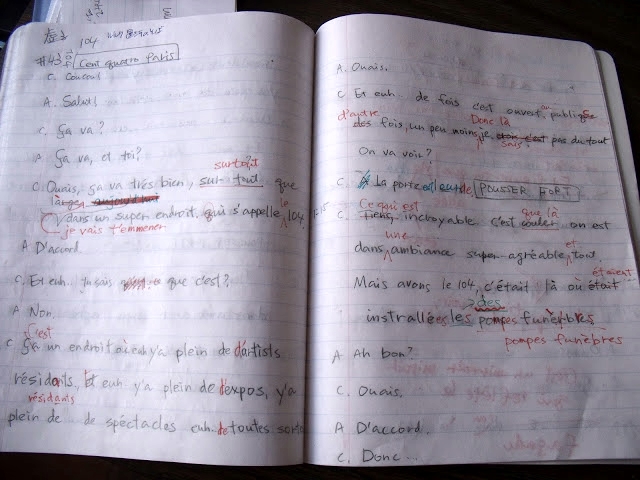 104
#43
Cent quatro Paris
C. Coucou!
A. Salut!
C. Ça va?
A. Ça va, et toi?
surtout
C. Ouais, ça va très bien, sur tout, que
aujourd'hui
dans un super endroit, qui s'appelle le 104.
je vais t'emmener
A. D'accord.
C. Et euh tu sais ce que c'est?
A. Non.
C'est
C. Ça un endroit où euh y'a plein de d'artists
résidants, Et euh y'a plein de d'expos, y'a
résidants
plein de de spéctacles euh de toutes sorte
A. Ouais.
C. Et euh de fois c'est ouvert, au publique
d'autre Donc là
des fois, un peu moins, je sais pas du tout
On va voir?
C. A la porte POUSSER FORT
Ce qui est que là
C. tiens, incroyable c'est on est
une et
dans ambiance super agréable, tout,
étaient
Mais avant le 104, c'était là où était
des
instrallées les pompes funèbres
pompes funèbres
A Ah bon?
C. Ouais.
A D'accord.
C. Donc...